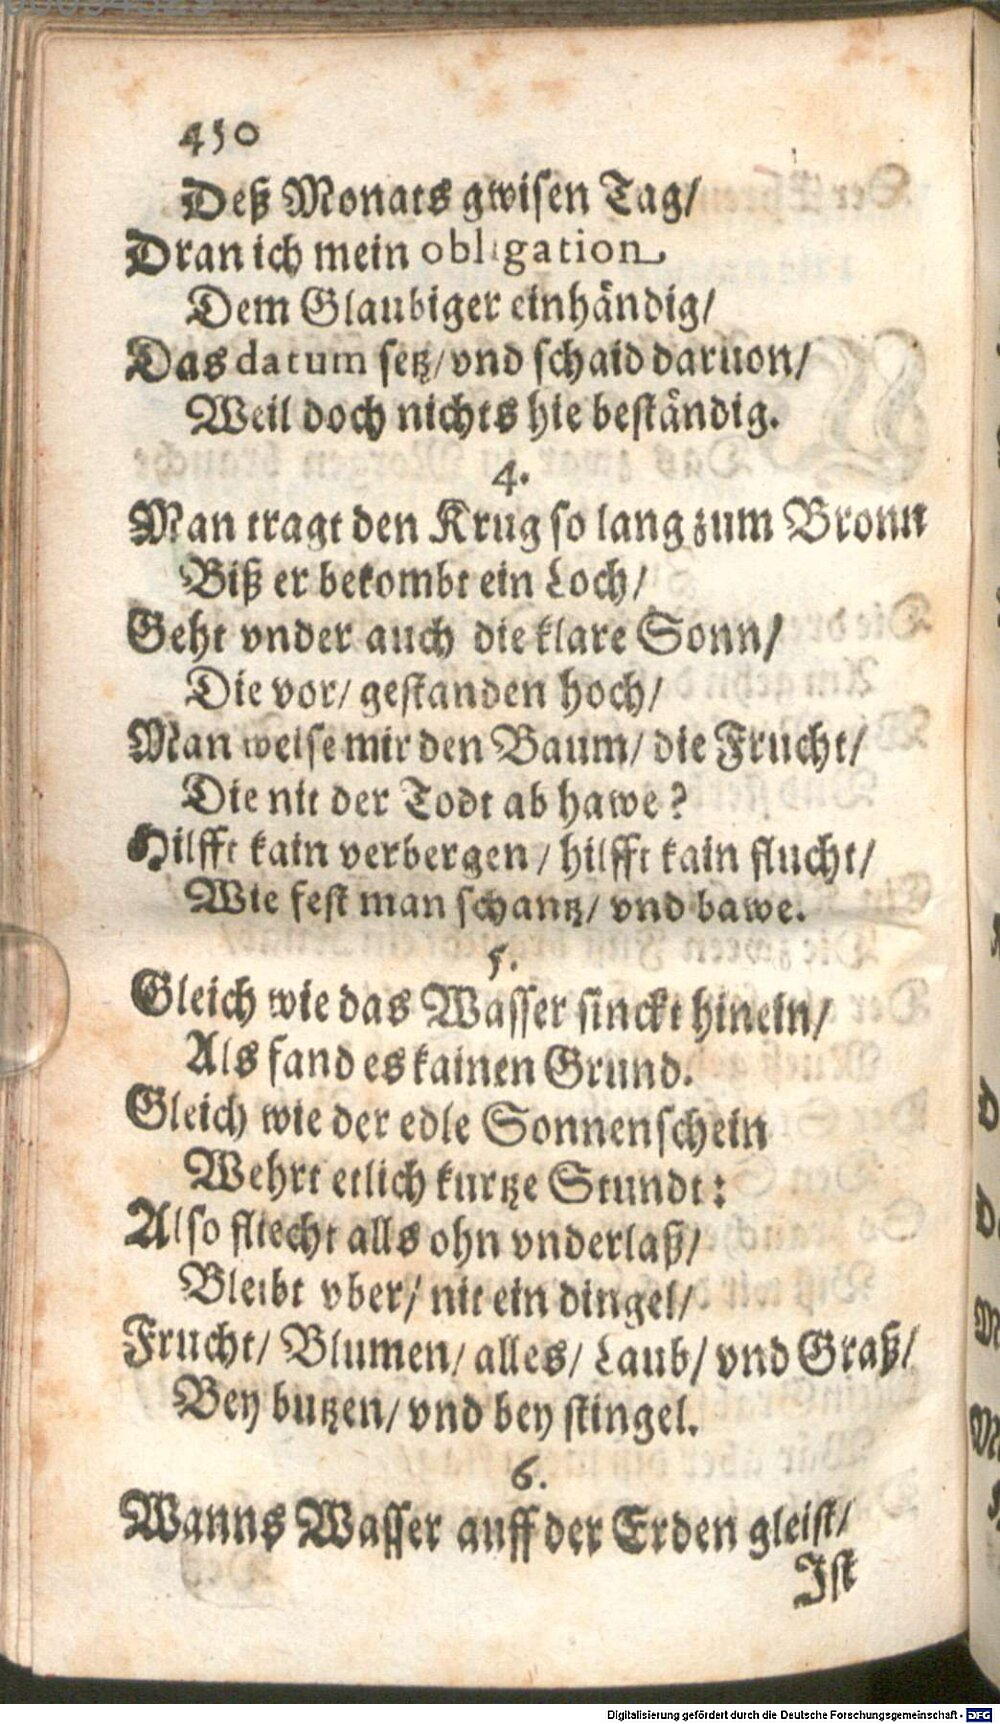 450
Deß Monats gwisen Tag/
Dran ich mein obligation
Dem Glaubiger einhändig/
Das datum setz/ vnd schaid daruon/
Weil doch nichts hie beständig.
4.
Man tragt den Krug so lang zum Bronn
Biß er bekombt ein Loch/
Geht vnder auch die klare Sonn/
Die vor/ gestanden hoch/
Man weise mir den Baum/ die Frucht/
Die nit der Todt ab hawe?
Hilfft kain verbergen/ hilfft kain flucht/
Wie fest man schantz/ vnd bawe.
5.
Gleich wie das Wasser sinckt hinein/
Als fand es kainen Grund.
Gleich wie der edle Sonnenschein
Wehrt etlich kurtze Stundt:
Also fliecht alls ohn vnderlaß/
Bleibt vber/ nit ein dingel/
Frucht/ Blumen/ alles/ Laub/ vnd Graß/
Bey butzen/ vnd bey stingel.
6.
Wanns Wasser auff der Erden gleist/
Ist
Digitalisierung gefördert durch die Deutsche Forschungsgemeinschaft - DFG